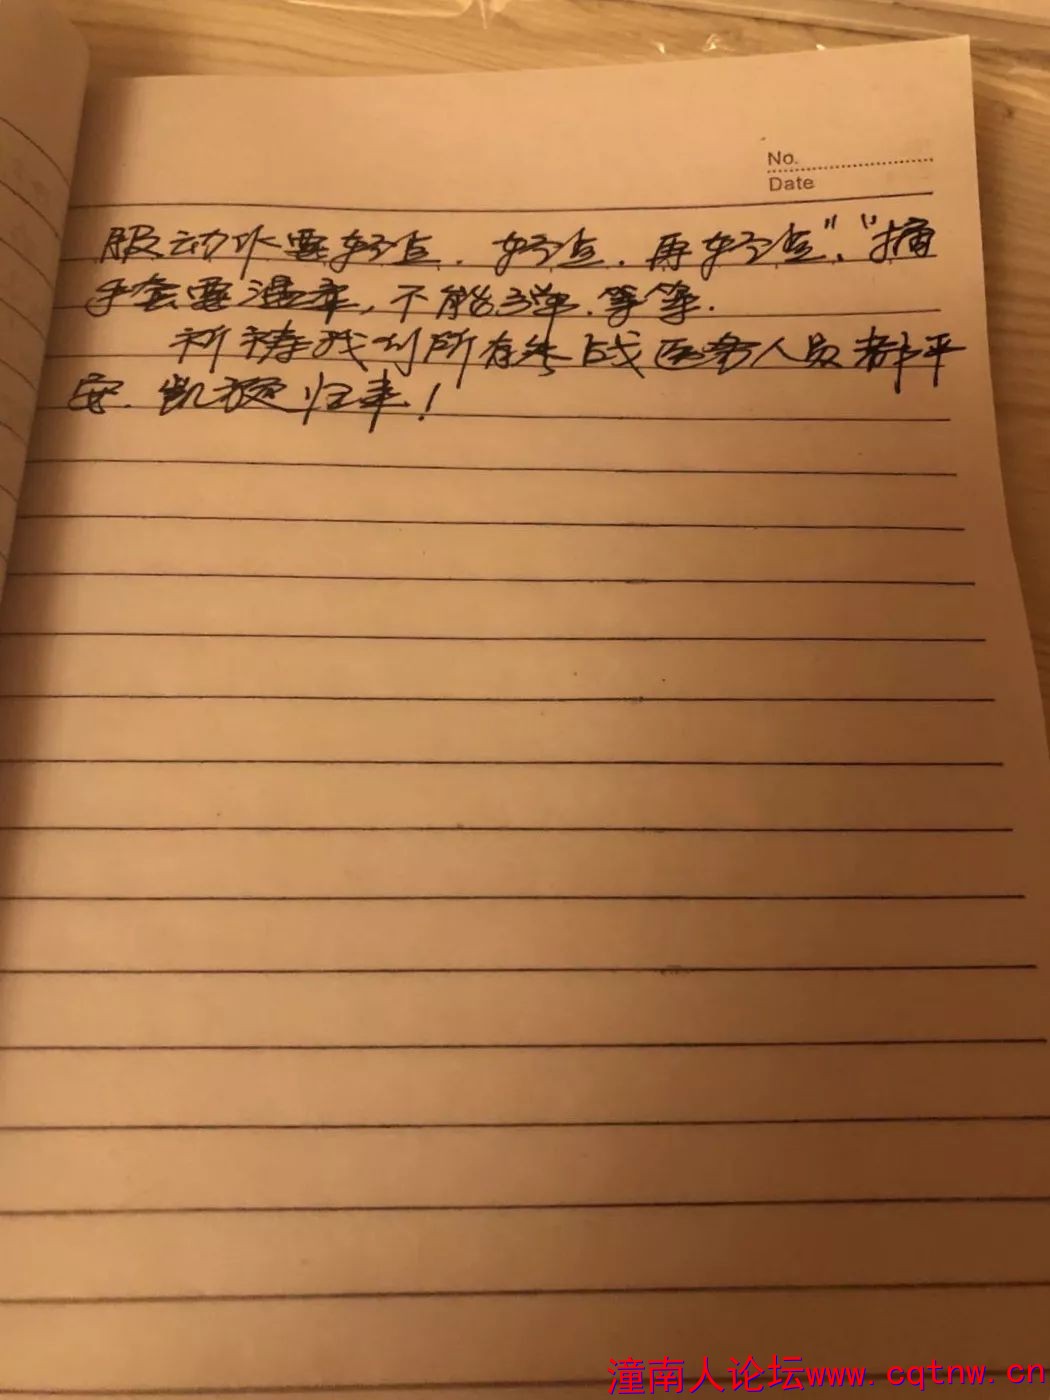 No.
Date
服动作要轻点、轻点、再轻点”、“摘
手套要温柔,不能弹.等等.
祈祷我们所有参战医务人员都平
安.凯旋归来!
潼南人论坛www.cqtnw.cn